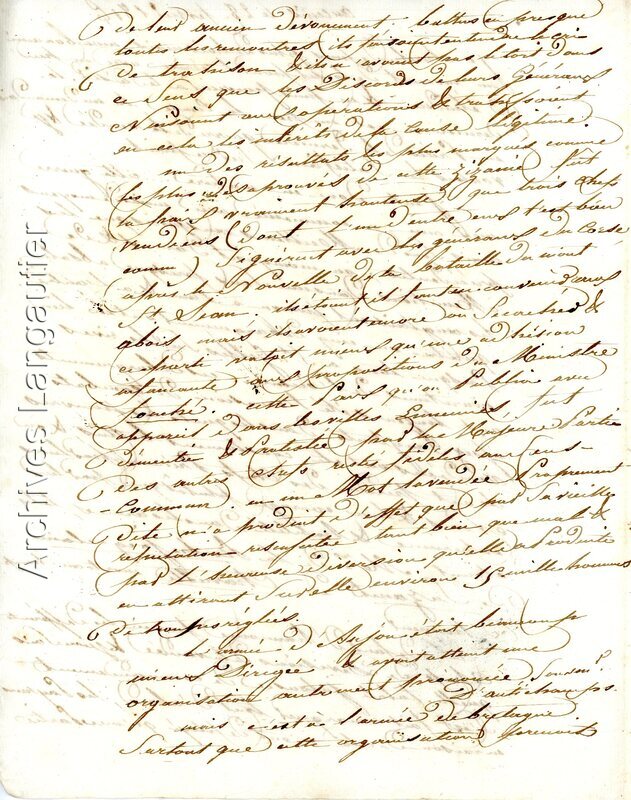 de leur ancien dévouement. battus en presque
toutes les rencontres, ils faisoient entendre le cri
de trahison & ils n'avoient pas le tort dans
ce sens que les Discords de leurs Généraux
Nuisoient aux opérations & trahissoient
en cela les intérêts de la Cause légitime.
un des résultats les plus marqués comme
les plus désaprouvés de cette zizanie fut
la paix vraiment honteuse que trois chefs
vendéens (dont l'un d'entr'eux est bien
connu) signèrent avec les généraux du Corse
après la Nouvelle de la bataille du mont
St Jean. ils étoient il faut en convenir aux
abois mais ils avoient encore un &
ce parti valoit mieux qu'une adhésion
infamante aux propositions du Ministre
fouché. cette Paix qu'on Publia en
appareil dans les villes Ennemies, fut
démentie & Protestée par la Majeure Partie
des autres chefs restés fidèles au Sens-
-Commun. en un Mot la vendée Proprement
Dite n'a produit d'effet que par sa vieille
réputation ressuscitée tant bien que mal &
par l'heureuse diversion qu'elle a Produite
en attirant sur elle environ 15 mille hommes
de troupes réglées.
L'armée d'Anjou étoit beaucoup
mieux Dirigée & avoit atteint une
organisation autrement prononcée Sous mr
D'autichamp.
mais c'est à l'armée de bretagne
Surtout que cette organisation
Archives Langautier